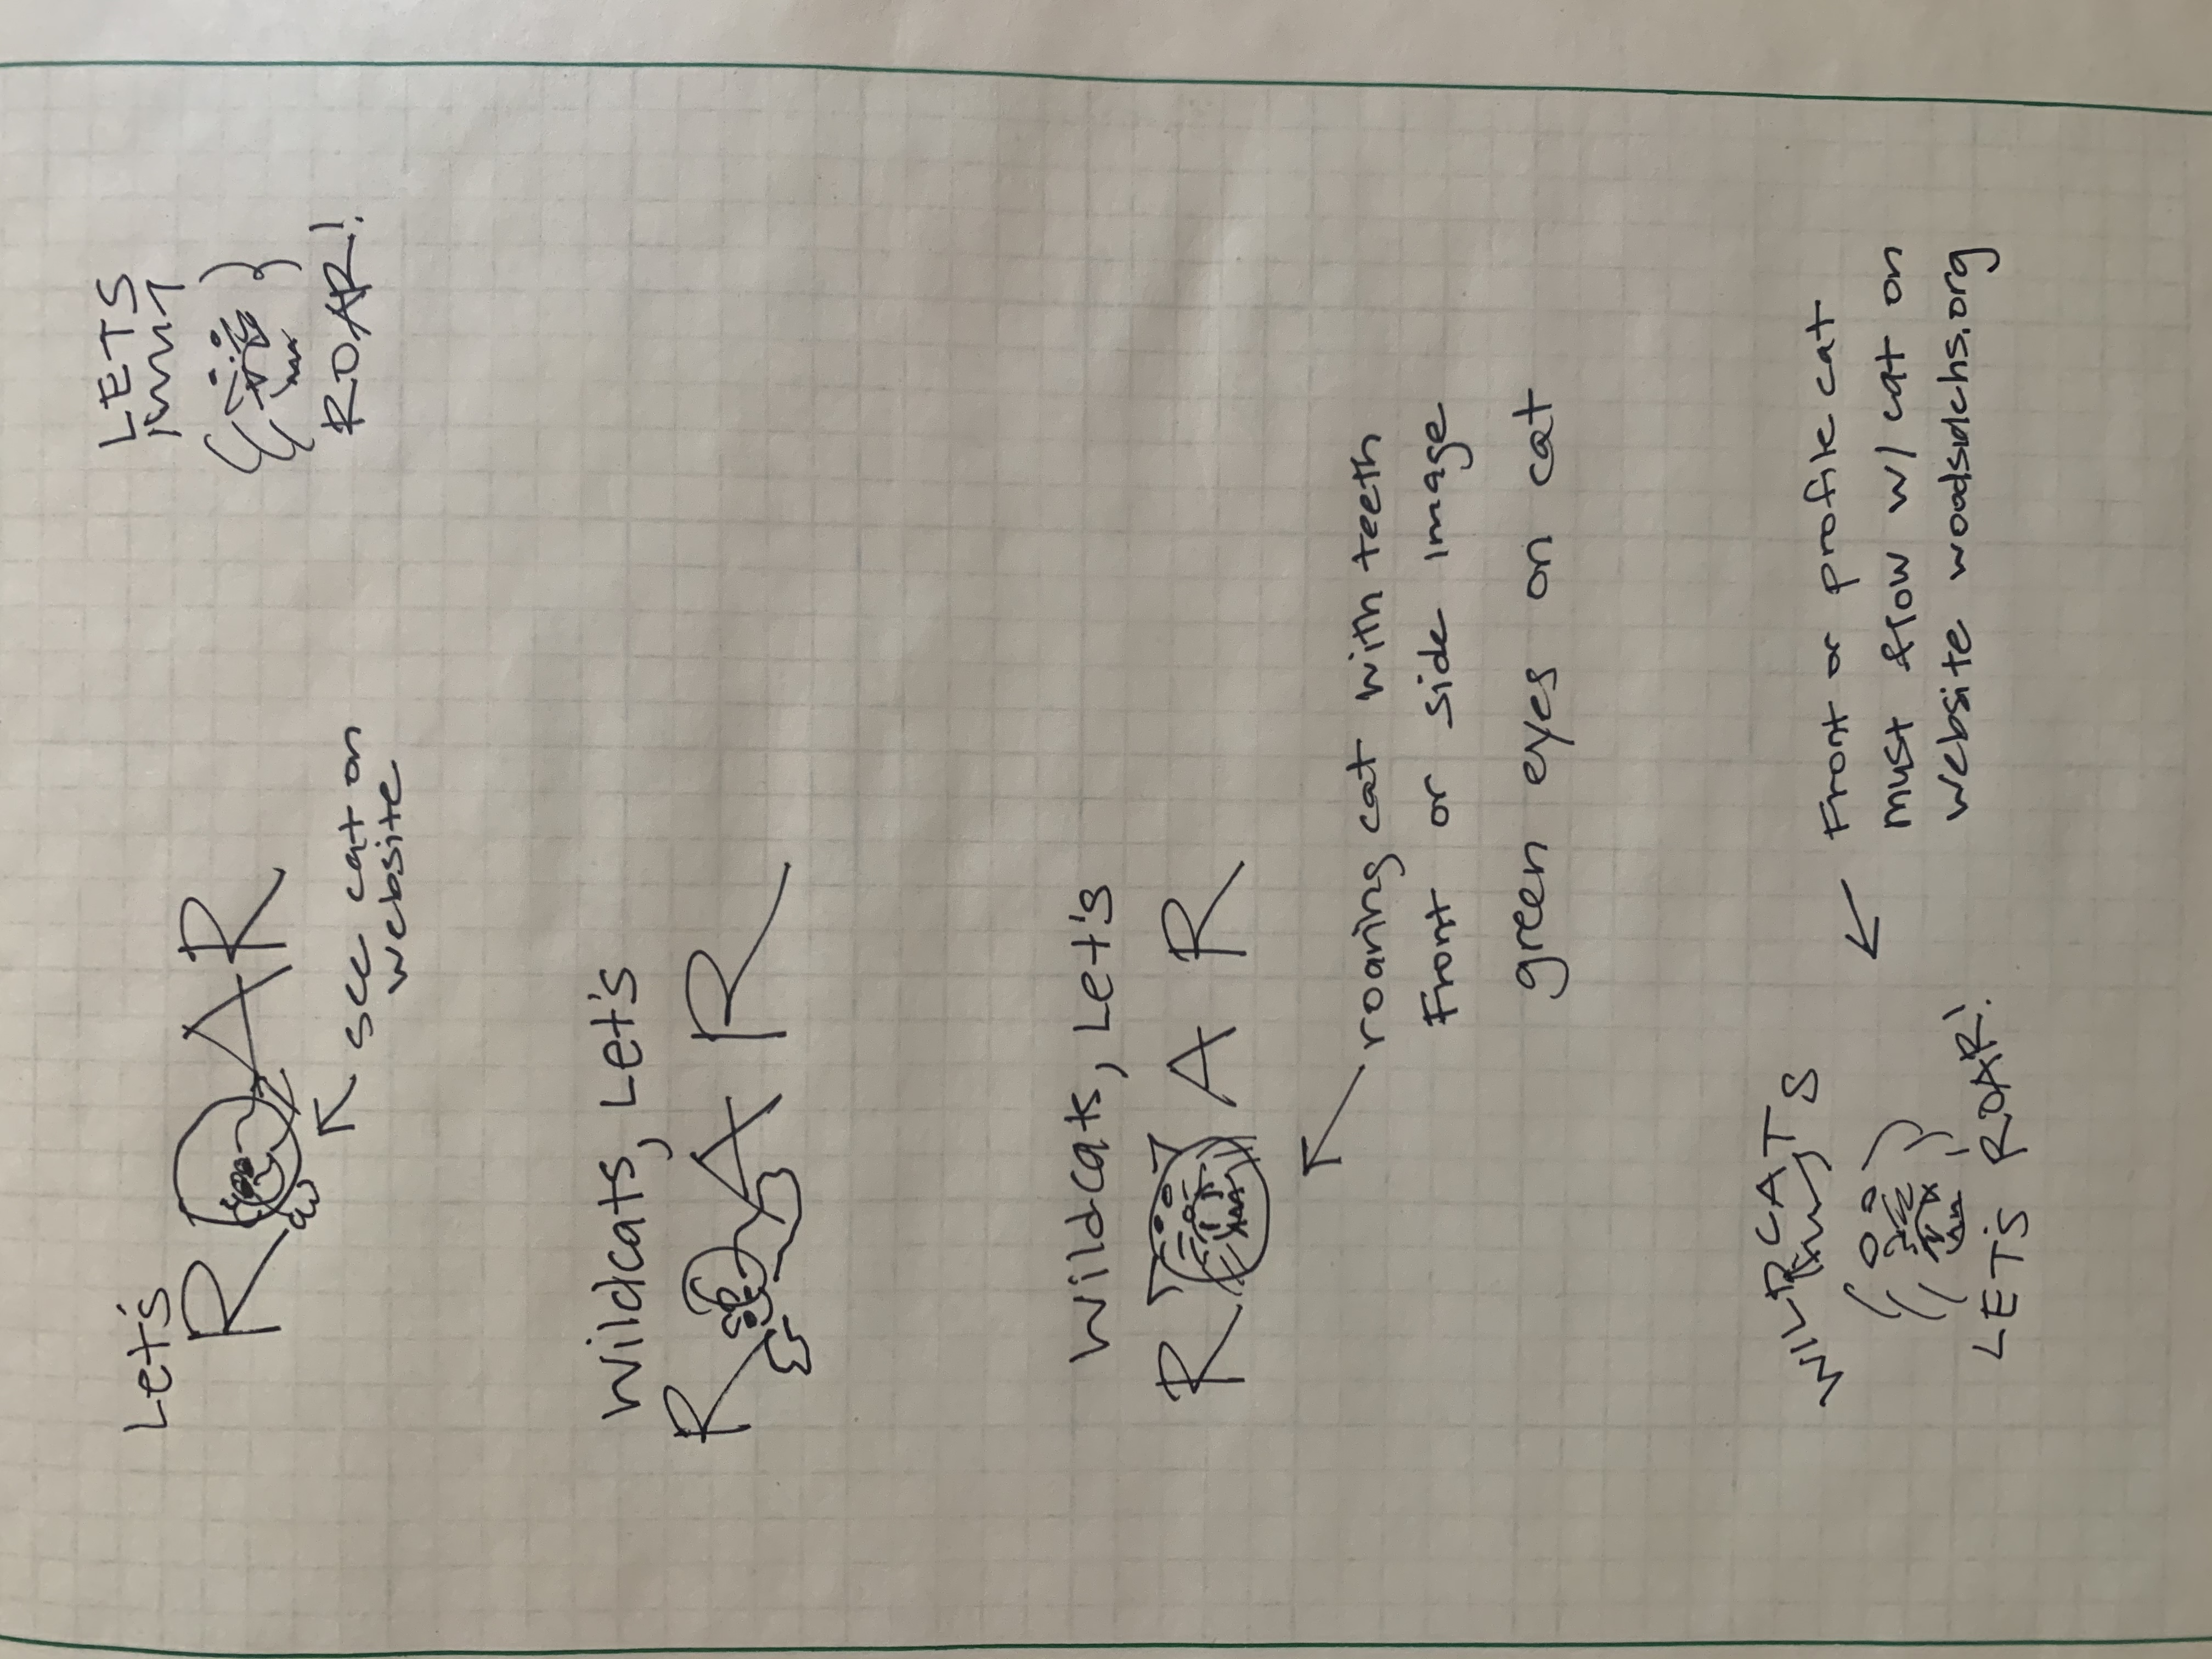 Let's
ROAR
see cat on
website
LETS
ROAR!
Wildcats, Let's
ROAR
Wildcats, Let's
ROAR
roaring cat with teeth
Front or side image
green eyes on cat
WILDCATS
LET'S ROAR!
Front or profile cat
must flow w/ cat on
website woodsidehs.org